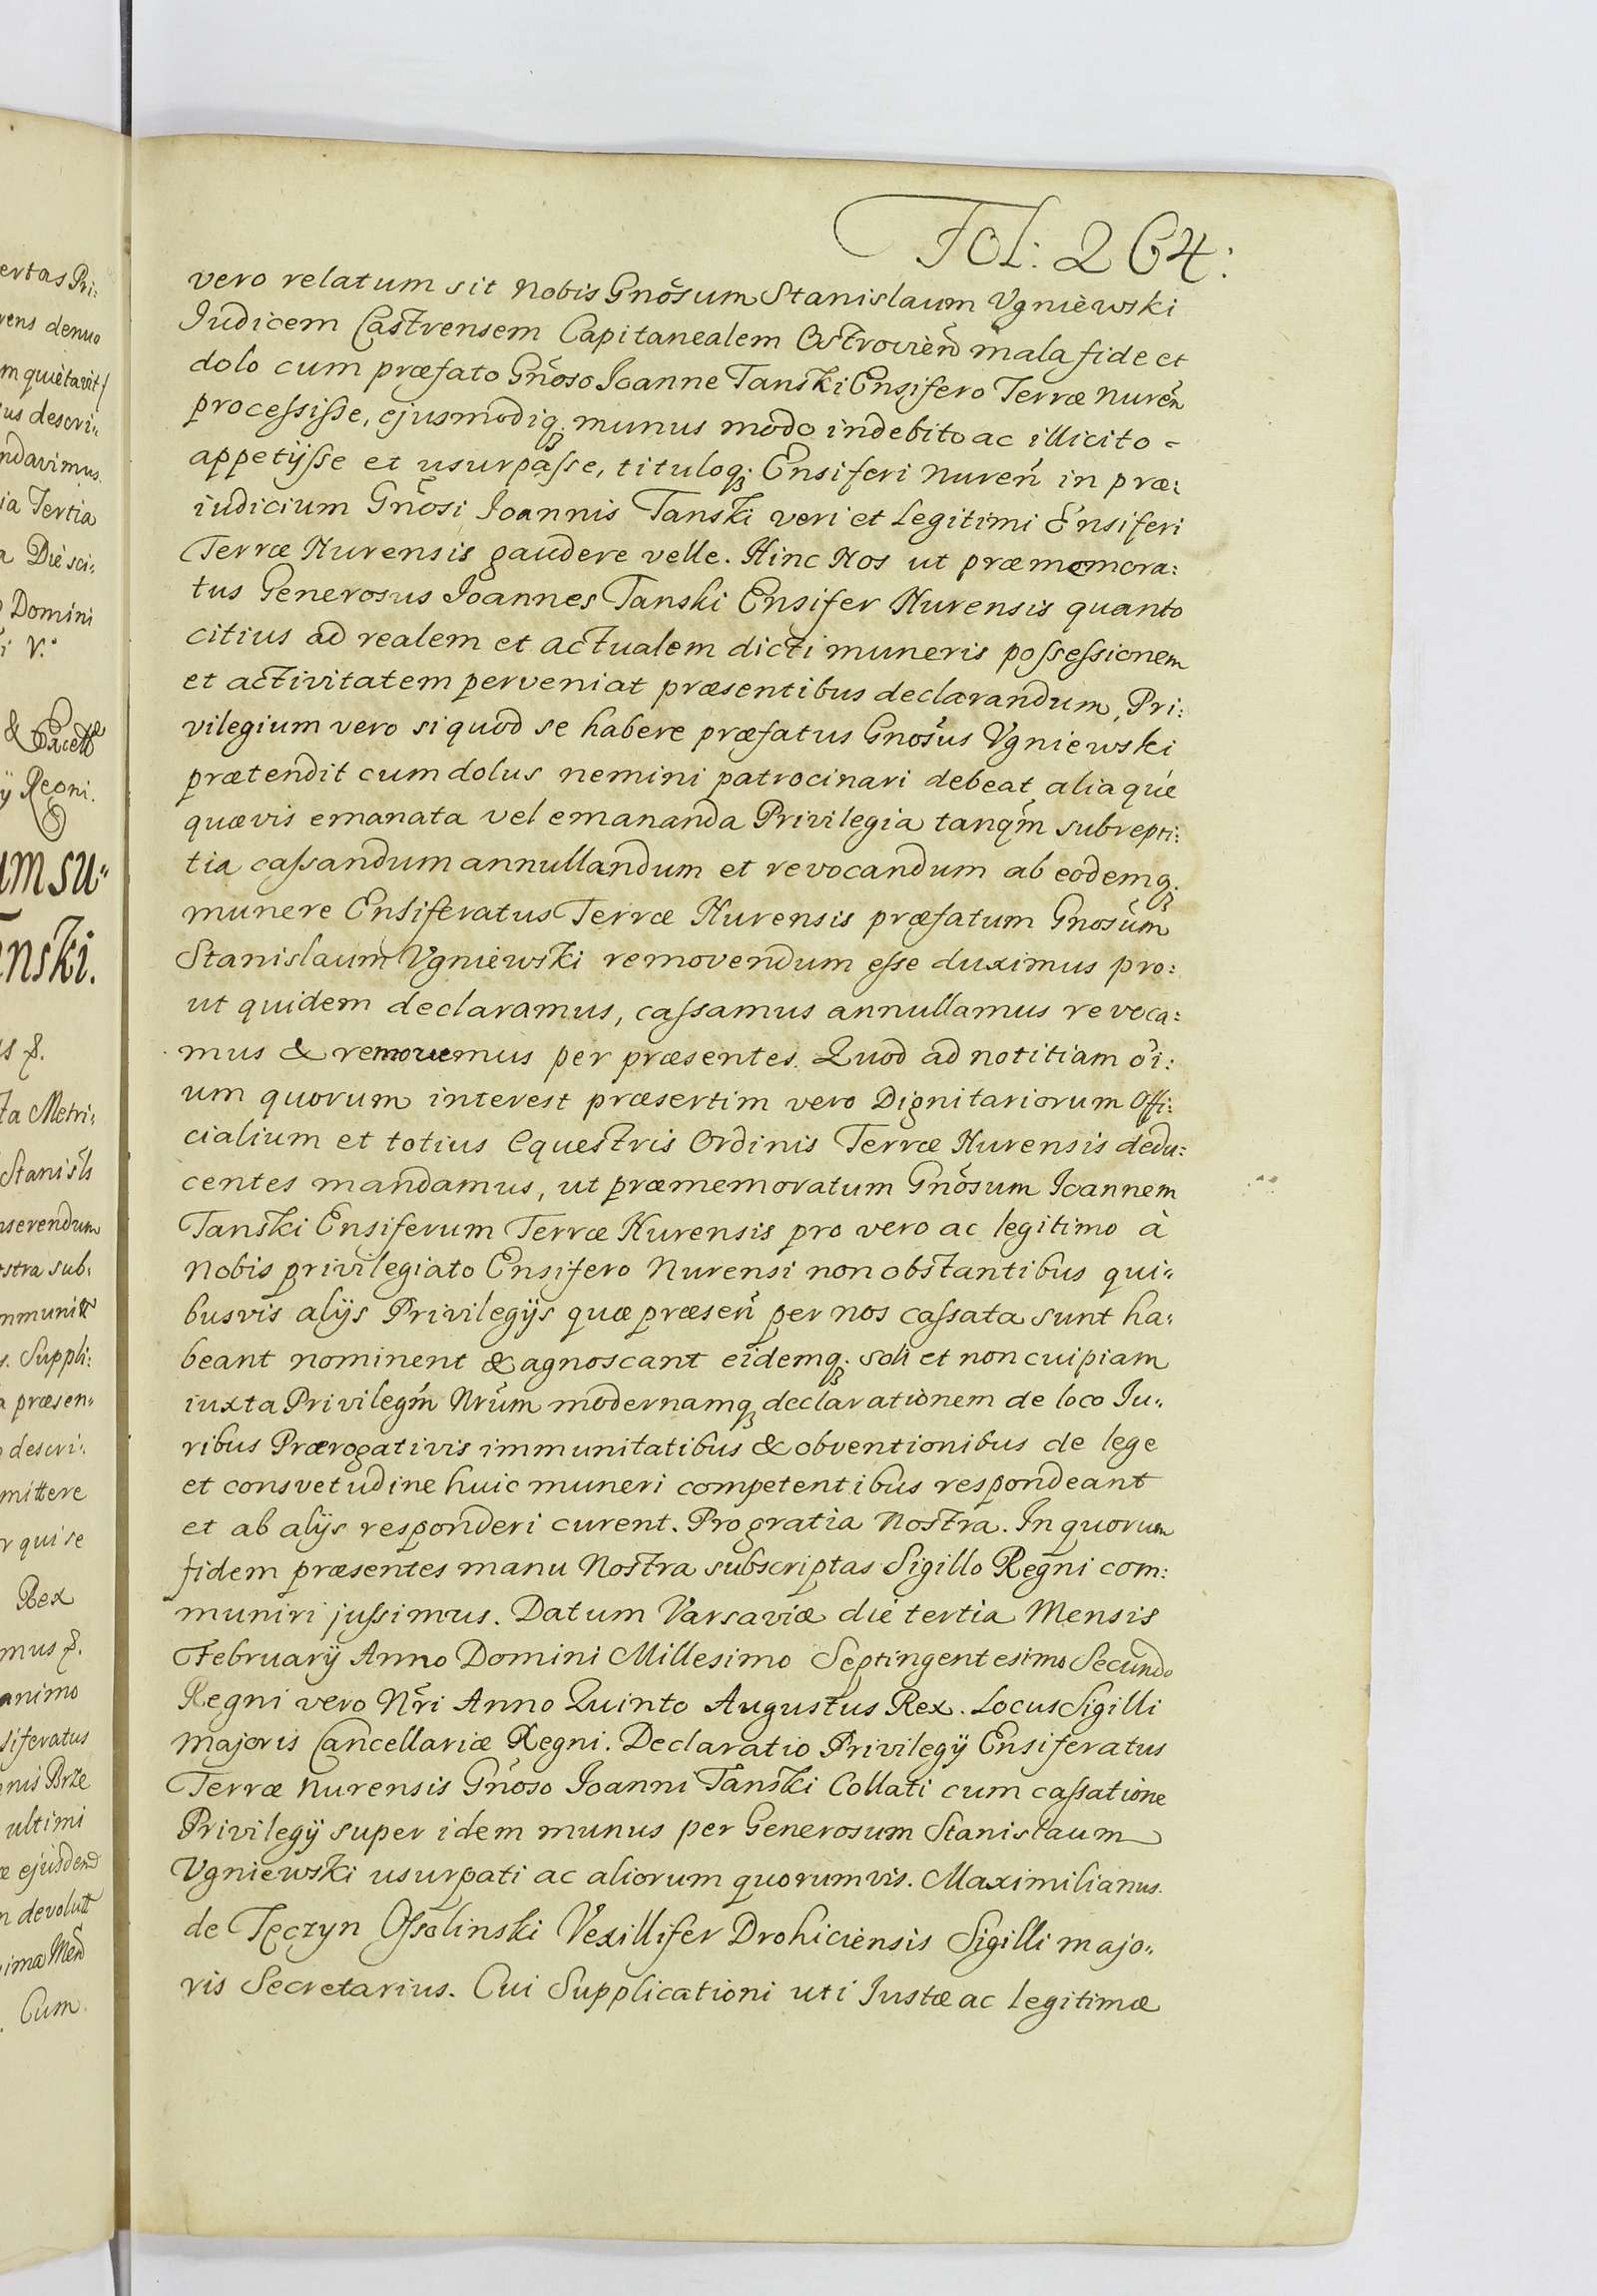 Fol: 264:
vero relatum sit Nobis Gnõsum Stanislaum Vgniewski
Iudicem Castrensem Capitanealem Ostrovien̄ mala fide et
dolo cum præfato Gnõso Ioanne Tanski Ensifero Terræ Nuren̄
processisse, ejusmodiq; munus modo indebito ac illicito -
appetijsse et usurpasse, tituloq; Ensiferi Nuren̄ in præ:
iudicium Gnõsi Joannis Tanski veri et Legitimi Ensiferi
Terræ Nurensis gaudere velle. Hinc Nos ut præmemora:
tus Generosus Joannes Tanski Ensifer Nurensis quanto
citius ad realem et actualem dicti muneris possessionem
et activitatem perveniat præsentibus declarandum, Pri:
vilegium vero si quod se habere præfatus Gnõsus Vgniewski
prætendit cum dolus nemini patrocinari debeat aliaque
quævis emanata vel emananda Privilegia tanq̄m subrepti:
tia cassandum annullandum et revocandum ab eodemq;
munere Ensiferatus Terræ Nurensis præfatum Gnõsum
Stanislaum Vgniewski removendum esse duximus pro:
ut quidem declaramus, cassamus annullamus revoca:
mus & removemus per præsentes. Quod ad notitiam õi:
um quorum interest præsertim vero Dignitariorum Offi:
cialium et totius Equestris Ordinis Terræ Nurensis dedu:
centes mandamus, ut præmemoratum Gnõsum Ioannem
Tanski Ensiferum Terræ Nurensis pro vero ac legitimo à
Nobis privilegiato Ensifero Nurensi non obstantibus qui:
busvis alijs Privilegijs quæ præsen̄ per nos cassata sunt ha:
beant nominent & agnoscant eidemq; soli et non cuipiam
iuxta Privileg̃m Nr̃um modernamq; declarationem de loco Iu:
ribus Prærogativis immunitatibus & obventionibus de lege
et consvetudine huic muneri competentibus respondeant
et ab alijs responderi curent. Pro gratia Nostra. In quorum
fidem præsentes manu Nostra subscriptas Sigillo Regni com:
muniri jussimus. Datum Varsaviæ die tertia Mensis
February Anno Domini Millesimo Septingentesimo Secundo
Regni vero Nr̃i Anno Quinto Augustus Rex. Locus Sigilli
Majoris Cancellariæ Regni. Declaratio Privilegij Ensiferatus
Terræ Nurensis Gnõso Joanni Tanski Collati cum cassatione
Privilegij super idem munus per Generosum Stanislaum
Vgniewski usurpati ac aliorum quorumvis. Maximilianus
de Tęczyn Ossolinski Vexillifer Drohiciensis Sigilli majo:
ris Secretarius. Cui Supplicationi uti Iustæ ac legitimæ